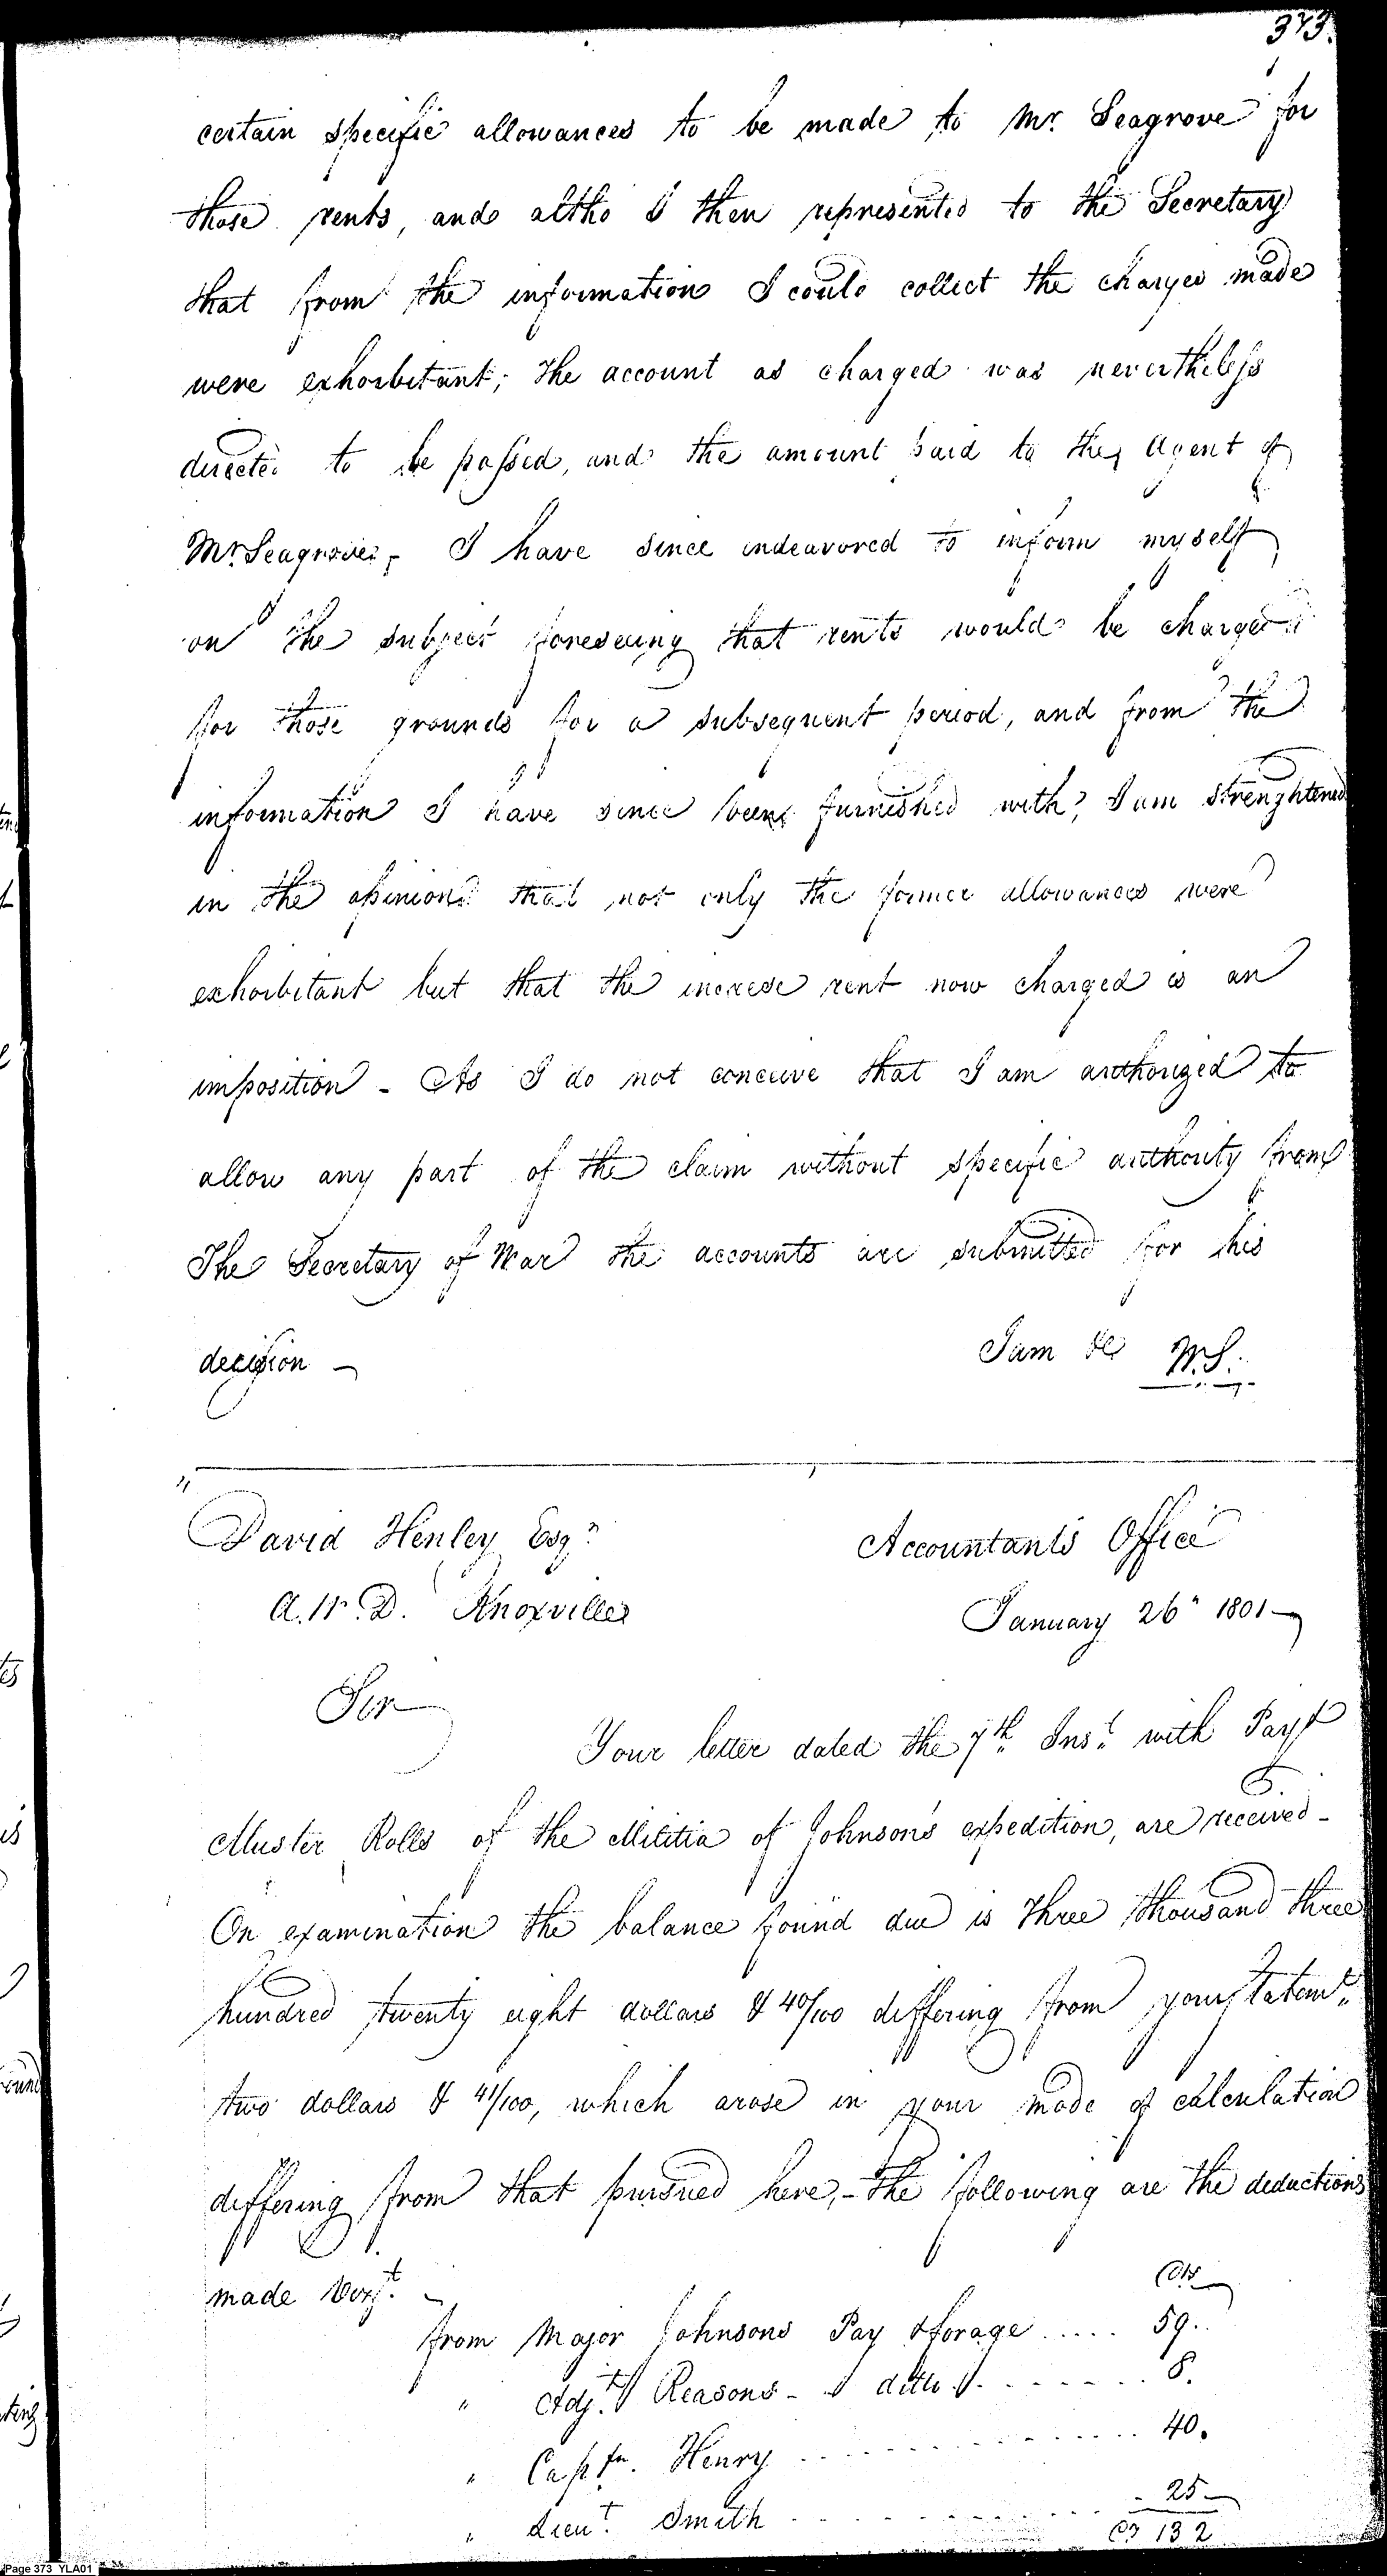 373.
certain specific allowances to be made to Mr. Seagrove for
those rents, and altho I then represented to the Secretary
that from the information I could collect the charges made
were exhorbitant; the account as charged was nevertheless
directed to be passed, and the amount paid to the Agent of
Mr. Seagrove, - I have since indeavored to inform myself
on the subject foreseeing that rents would be charged
for those grounds for a subsequent period, and from the
information I have since been furnished with, I am strenghtened
in the opinion that not only the former allowances were
exhorbitant but that the increse rent now charged is an
imposition - As I do not conceive that I am authorized to
allow any part of the claim without specific authority from
The Secretary of War the accounts are submitted for his
decision -
I am &c W.S.
David Henley Esqr.
A.W.D. Knoxville
Accountants Office
January 26" 1801
Sir
Your letter dated the 7th Inst. with Pay &
Muster Rolls of the Militia of Johnson's expedition, are received -
On examination the balance found due is three thousand three
hundred twenty eight dollars & 40/100 differing from your statemt.
two dollars & 41/100, which arose in your mode of calculation
differing from that pursued here, - the following are the deductions
made
from Major Johnsons Pay & forage ..... 59..
" Adjt. Reasons - ditto ....... 8.
" Captn. Henry ............... 40.
" Lieut. Smith ............ 25
132
Page 373 YLA01